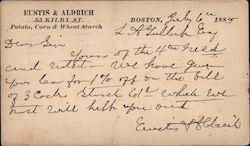 EUSTIS & ALDRICH
55 KILBY ST.
Potato, Corn & Wheat Starch
BOSTON, July 6th 1885
L A Gulick Esq
Dear Sir
Yours of the 4th recd
and noted - We have given
your Car for 1% off on the bill
of 3 Casks Starch
must will help you out
Eustis & Aldrich